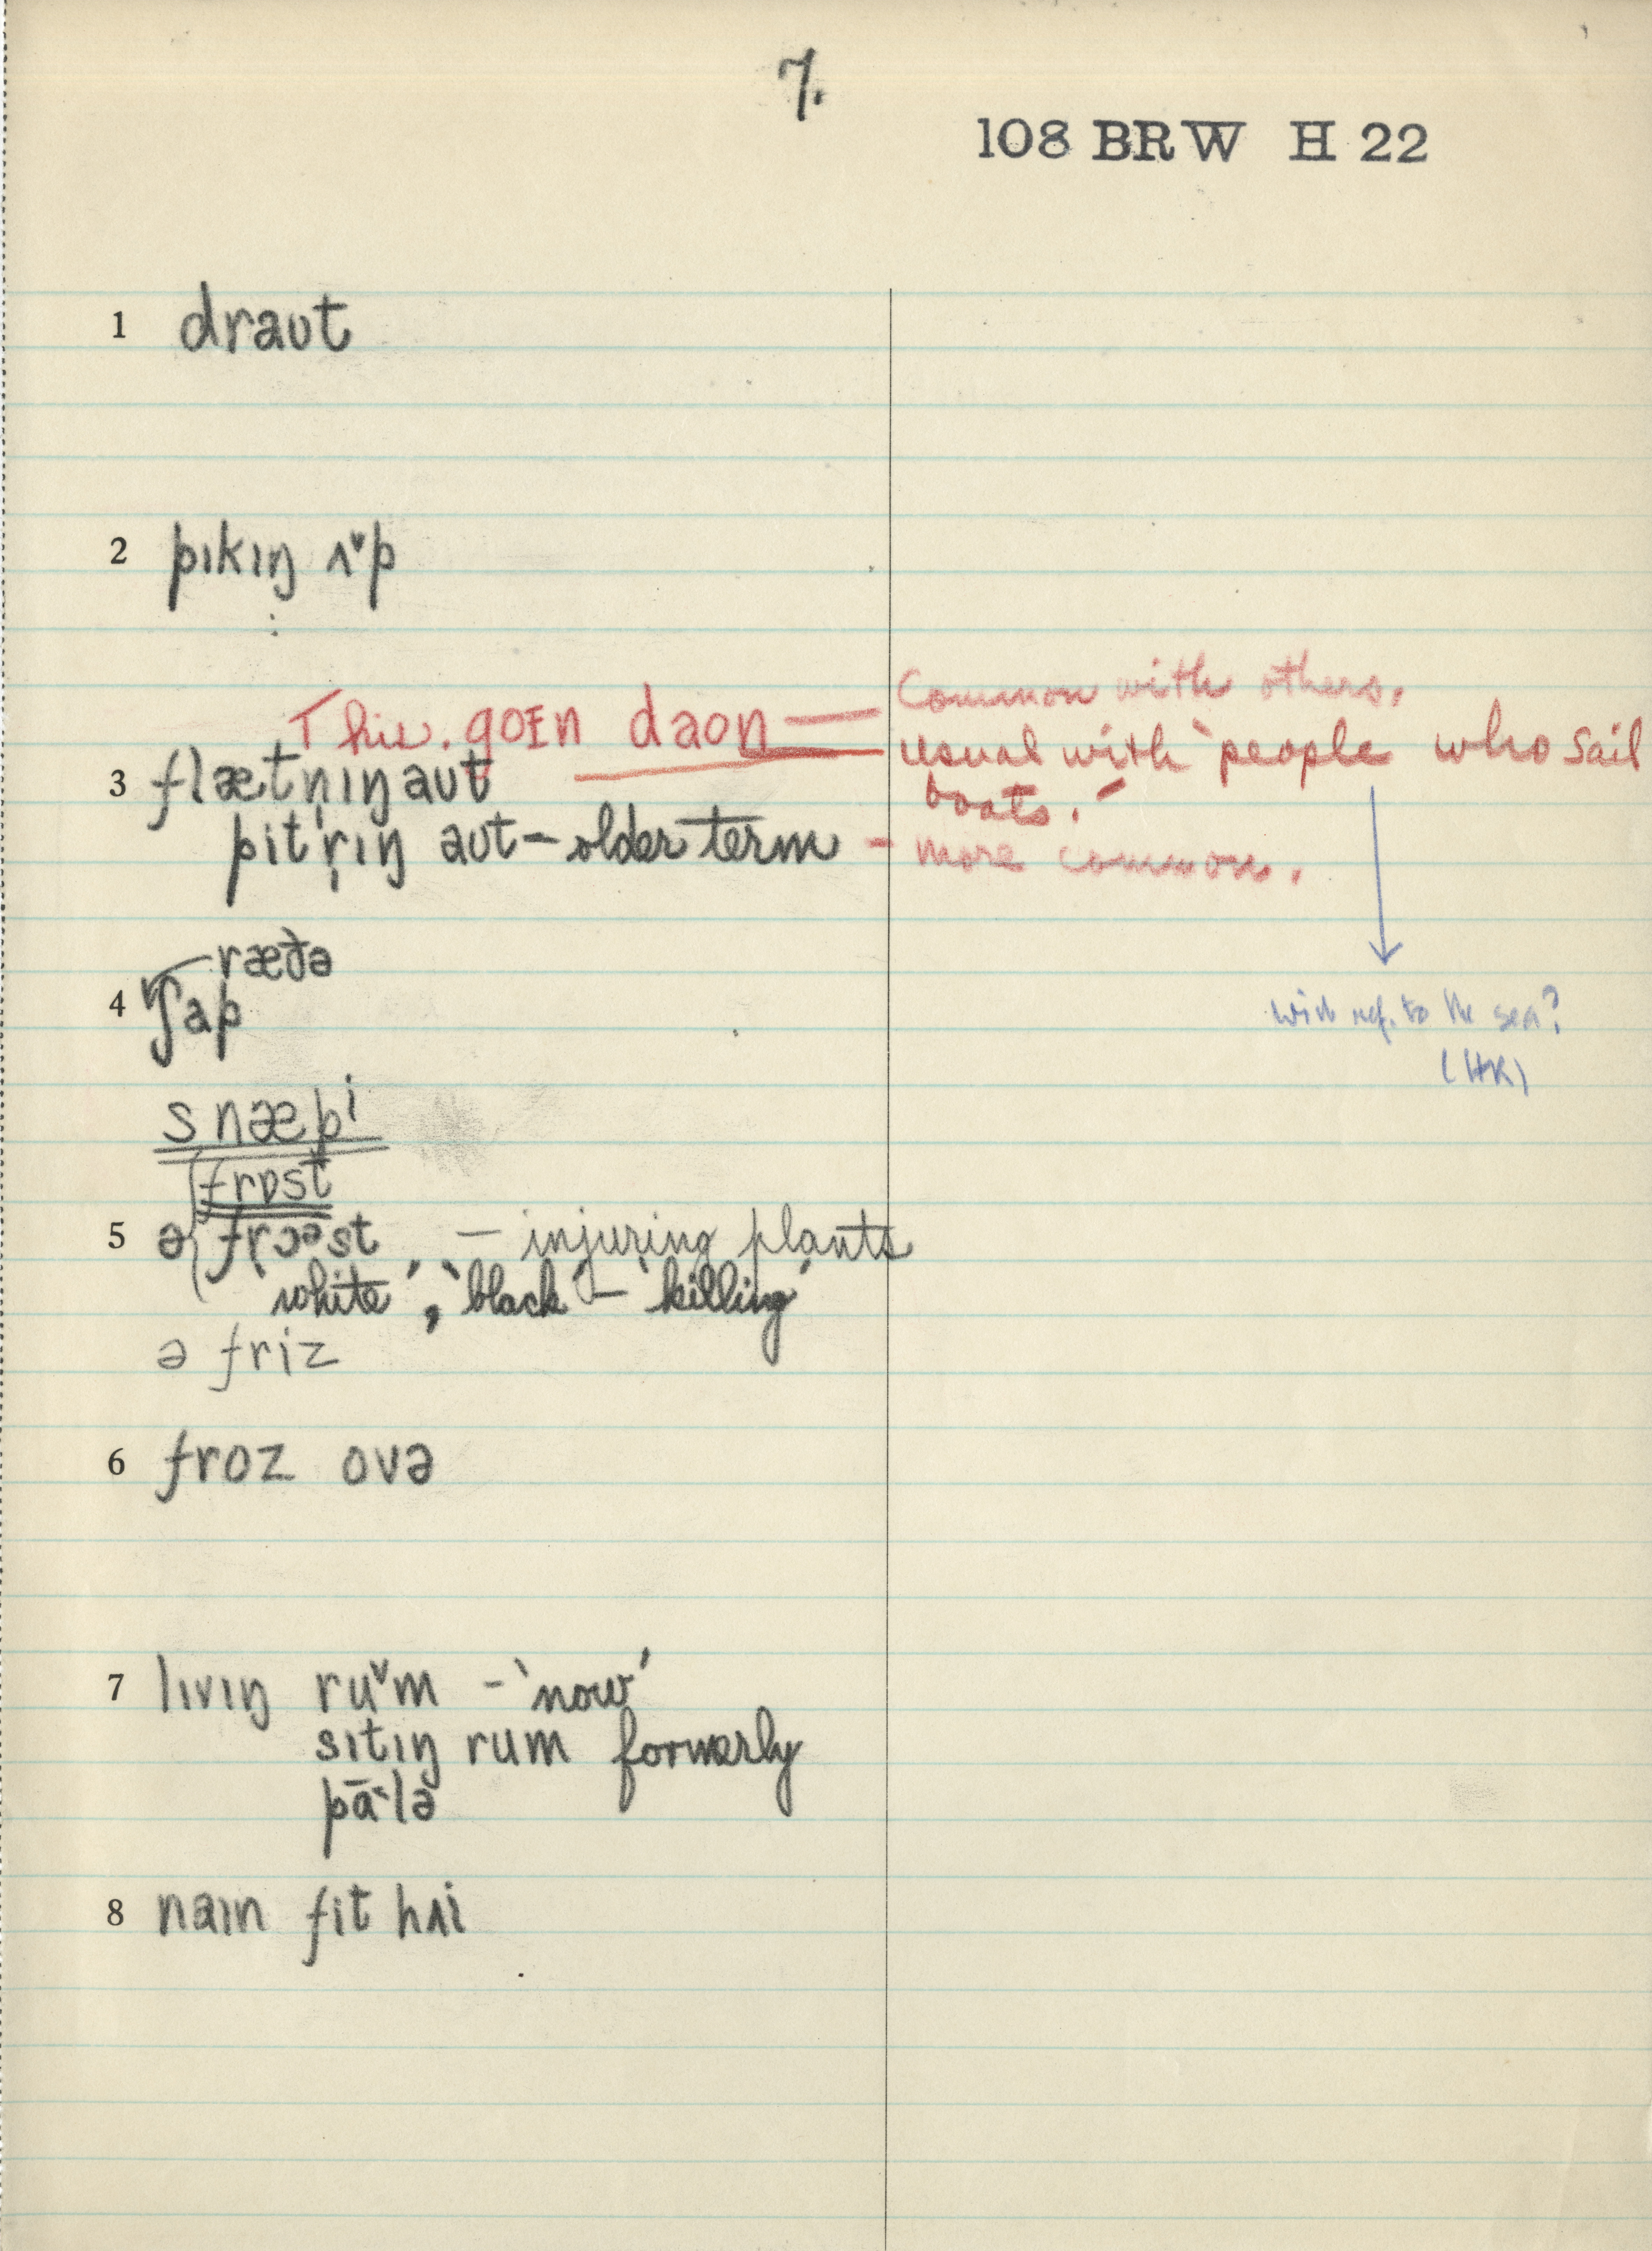 7.
108 BRW H 22
1 draʊt
2 pɪkɪŋ ʌ˅p
This. goɪn daon — Common with others.
3 flætn̩ɪŋ aʊt — usual with 'people who sail boats.'
pitr̩ɪŋ aʊt – older term – more common.
ræðə
4 ʃap
with ref. to the sea?
(HK)
snæpi
frɒst
5 ə frɔəst — injuring plants
'white', 'black' – 'killing'
ə friz
6 froz ovə
7 lɪvɪŋ ru˅m – 'now'
sɪtɪŋ rum formerly
pālə
8 naɪn fit hʌi